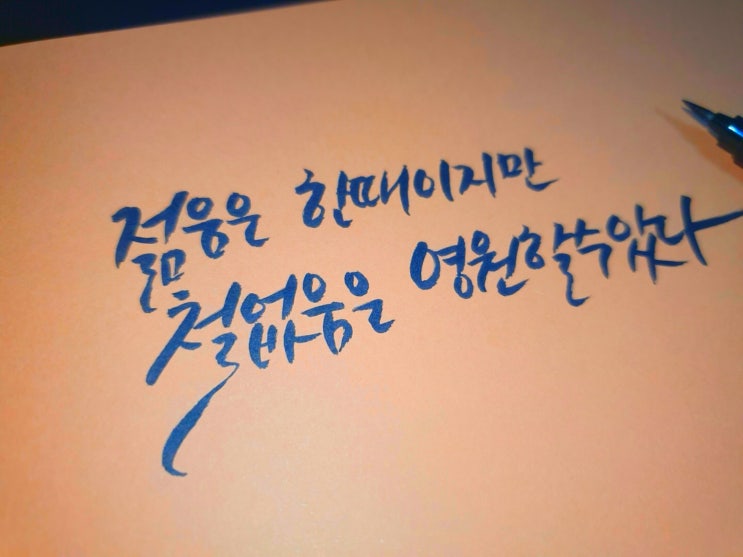 젊음은 한때이지만
철없움은 영원할수있다